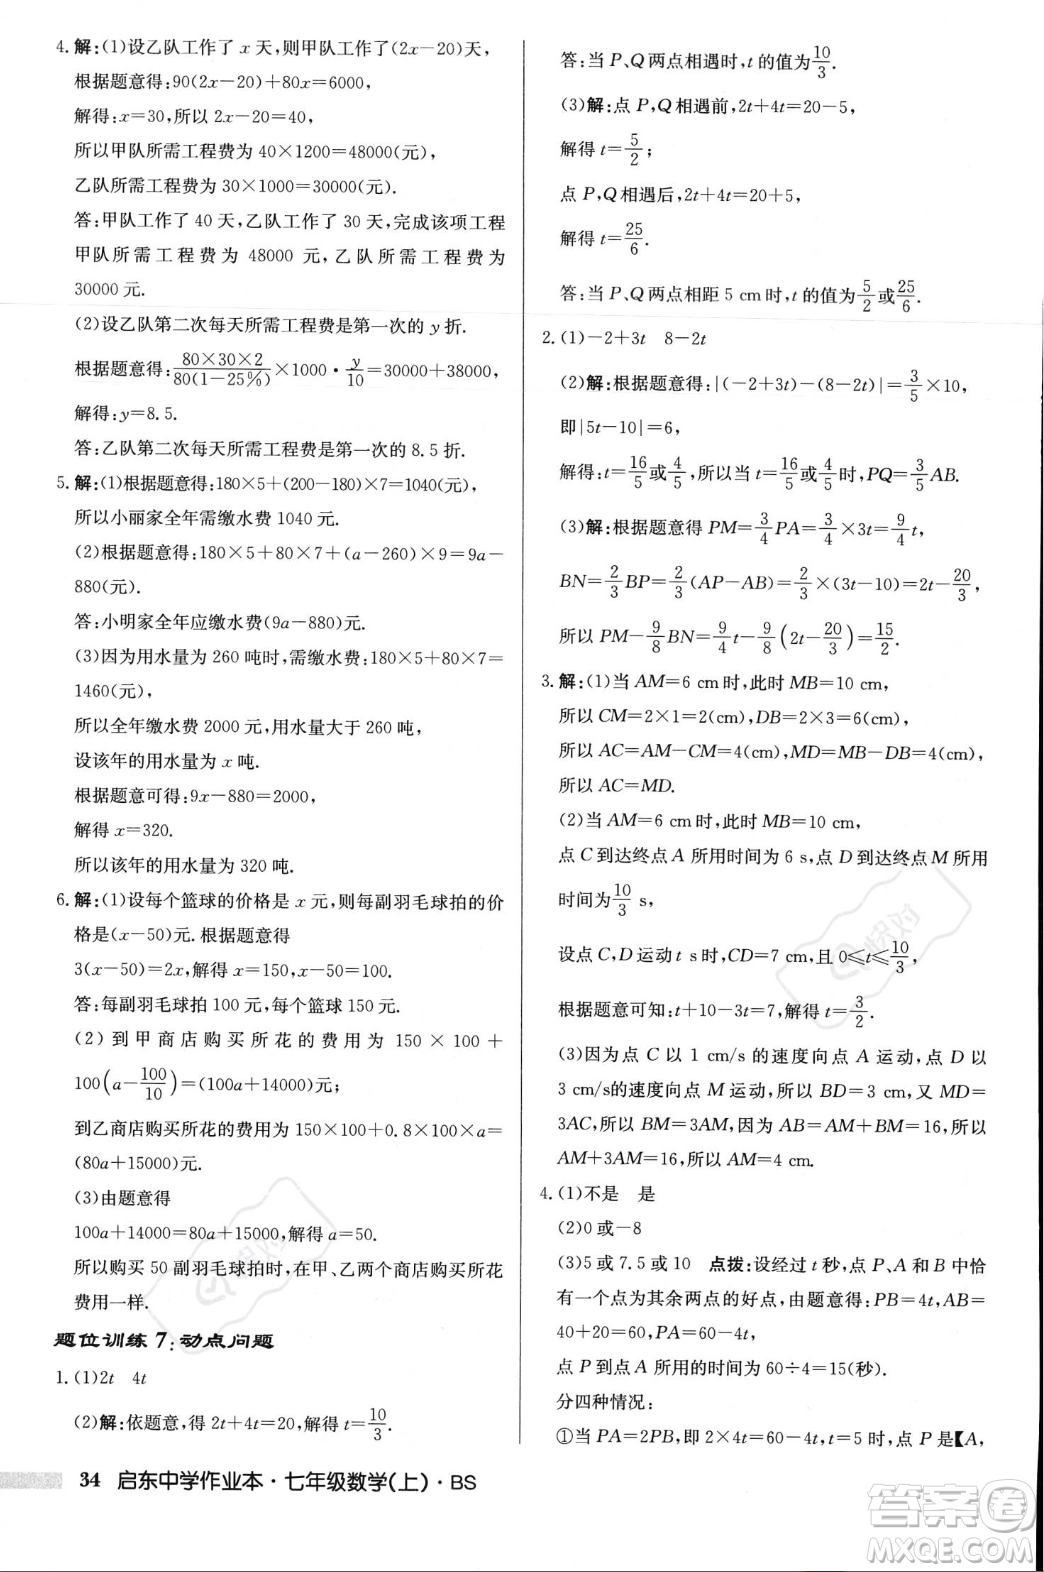 4.解:(1)设乙队工作了 x 天,则甲队工作了(2x－20)天,
根据题意得:90(2x－20)＋80x＝6000,
解得:x＝30,所以 2x－20＝40,
所以甲队所需工程费为 40×1200＝48000(元),
乙队所需工程费为 30×1000＝30000(元).
答:甲队工作了 40 天,乙队工作了 30 天,完成该项工程
甲队所需工程费为 48000 元,乙队所需工程费为
30000 元.
(2)设乙队第二次每天所需工程费是第一次的 y 折.
根据题意得:\frac{80×30×2}{80(1－25%)}×1000·\frac{y}{10}＝30000＋38000,
解得:y＝8.5.
答:乙队第二次每天所需工程费是第一次的 8.5 折.
5.解:(1)根据题意得:180×5＋(200－180)×7＝1040(元),
所以小丽家全年需缴水费 1040 元.
(2)根据题意得:180×5＋80×7＋(a－260)×9＝9a－
880(元).
答:小明家全年应缴水费(9a－880)元.
(3)因为用水量为 260 吨时,需缴水费:180×5＋80×7＝
1460(元),
所以全年缴水费 2000 元,用水量大于 260 吨.
设该年的用水量为 x 吨.
根据题意可得:9x－880＝2000,
解得 x＝320.
所以该年的用水量为 320 吨.
6.解:(1)设每个篮球的价格是 x 元,则每副羽毛球拍的价
格是(x－50)元.根据题意得
3(x－50)＝2x,解得 x＝150,x－50＝100.
答:每副羽毛球拍 100 元,每个篮球 150 元.
(2)到甲商店购买所花的费用为 150×100＋
100(a－\frac{100}{10})＝(100a＋14000)元;
到乙商店购买所花的费用为 150×100＋0.8×100×a＝
(80a＋15000)元.
(3)由题意得
100a＋14000＝80a＋15000,解得 a＝50.
所以购买 50 副羽毛球拍时,在甲、乙两个商店购买所花
费用一样.
题位训练 7:动点问题
1.(1)2t 4t
(2)解:依题意,得 2t＋4t＝20,解得 t＝\frac{10}{3}.
答:当 P、Q 两点相遇时,t 的值为\frac{10}{3}.
(3)解:点 P,Q 相遇前,2t＋4t＝20－5,
解得 t＝\frac{5}{2};
点 P,Q 相遇后,2t＋4t＝20＋5,
解得 t＝\frac{25}{6}.
答:当 P、Q 两点相距 5 cm 时,t 的值为\frac{5}{2}或\frac{25}{6}.
2.(1)－2＋3t 8－2t
(2)解:根据题意得:|(－2＋3t)－(8－2t)|＝\frac{3}{5}×10,
即|5t－10|＝6,
解得:t＝\frac{16}{5}或\frac{4}{5},所以当 t＝\frac{16}{5}或\frac{4}{5}时,PQ＝\frac{3}{5}AB.
(3)解:根据题意得 PM＝\frac{3}{4}PA＝\frac{3}{4}×3t＝\frac{9}{4}t,
BN＝\frac{2}{3}BP＝\frac{2}{3}(AP－AB)＝\frac{2}{3}×(3t－10)＝2t－\frac{20}{3},
所以 PM－\frac{9}{8}BN＝\frac{9}{4}t－\frac{9}{8}(2t－\frac{20}{3})＝\frac{15}{2}.
3.解:(1)当 AM＝6 cm 时,此时 MB＝10 cm,
所以 CM＝2×1＝2(cm),DB＝2×3＝6(cm),
所以 AC＝AM－CM＝4(cm),MD＝MB－DB＝4(cm),
所以 AC＝MD.
(2)当 AM＝6 cm 时,此时 MB＝10 cm,
点 C 到达终点 A 所用时间为 6 s,点 D 到达终点 M 所用
时间为\frac{10}{3} s,
设点 C,D 运动 t s 时,CD＝7 cm,且 0≤t≤\frac{10}{3},
根据题意可知:t＋10－3t＝7,解得 t＝\frac{3}{2}.
(3)因为点 C 以 1 cm/s 的速度向点 A 运动,点 D 以
3 cm/s的速度向点 M 运动,所以 BD＝3 cm,又 MD＝
3AC,所以 MB＝3AM,因为 AB＝AM＋BM＝16,所以
AM＋3AM＝16,所以 AM＝4 cm.
4.(1)不是 是
(2)0 或－8
(3)5 或 7.5 或 10 点拨:设经过 t 秒,点 P、A 和 B 中恰
有一个点为其余两点的好点,由题意得:PB＝4t,AB＝
40＋20＝60,PA＝60－4t,
点 P 到点 A 所用的时间为 60÷4＝15(秒).
分四种情况:
①当 PA＝2PB,即 2×4t＝60－4t,t＝5 时,点 P 是【A,
34 启东中学作业本·七年级数学(上)·BS
快对
快对
答案卷
MXQE.COM